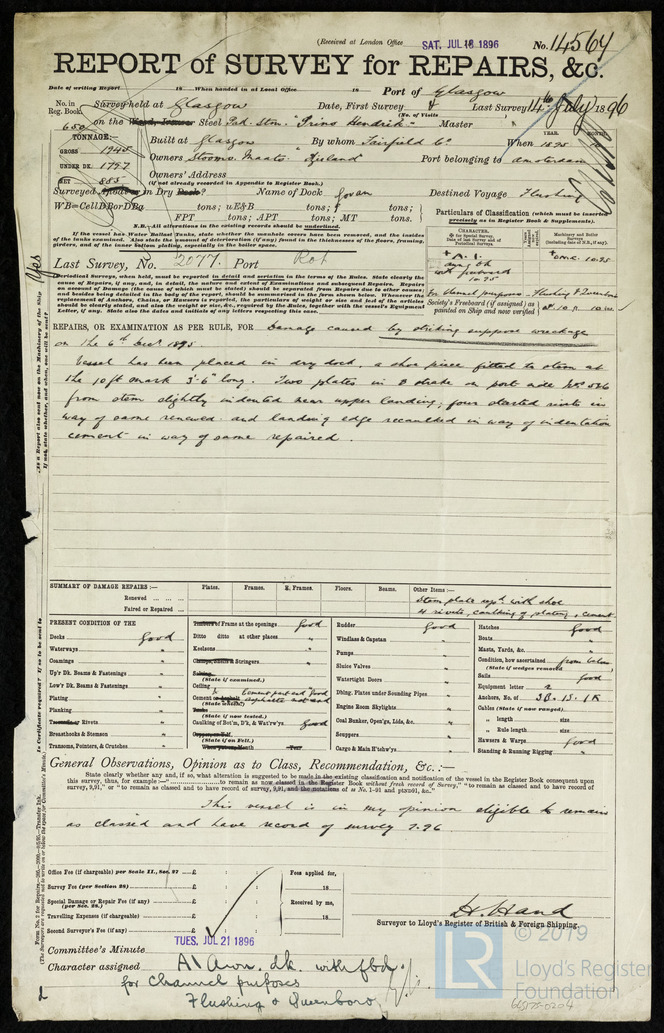 (Received at London Office SAT. JUL 18 1896 No. 14564
REPORT of SURVEY for REPAIRS, &c.
Date of writing Report 18 When handed in at Local Office 18 Port of Glasgow
No. in Reg. Book. Survey held at Glasgow Date, First Survey Last Survey 14th July 1896
(No. of Visits
650 on the Steel Pad. Stmr. "Prins Hendrik" Master
TONNAGE:— Built at Glasgow By whom Fairfield Co When 1895
YEAR. MONTH.
GROSS 1945
UNDER DK. 1757 Owners Stoomv. Maats. Zeeland Port belonging to Amsterdam
NET 855 Owners' Address
(If not already recorded in Appendix to Register Book.)
Surveyed Afloat or in Dry Dock? Name of Dock Govan Destined Voyage Flushing
WB=CellDBorDBa tons; uE&B tons; f tons;
FPT tons; APT tons; MT tons.
Particulars of Classification (which must be inserted precisely as in Register Book & Supplements).
N.B.—All alterations in the existing records should be underlined.
If the vessel has Water Ballast Tanks, state whether the manhole covers have been removed, and the insides
of the tanks examined. Also state the amount of deterioration (if any) found in the thicknesses of the floors, framing,
girders, and of the inner bottom plating, especially in the boiler space.
Last Survey, No. 2077. Port Rot
Periodical Surveys, when held, must be reported in detail and seriatim in the terms of the Rules. State clearly the
cause of Repairs, if any, and, in detail, the nature and extent of Examinations and subsequent Repairs. Repairs
on account of Damage (the cause of which must be stated) should be separated from Repairs due to other causes;
and besides being detailed in the body of the report, should be summarised in the form shown below. Whenever the
replacement of Anchors, Chains, or Hawsers is reported, the particulars of weight or size and test of the articles
should be clearly stated, and also the weight or size, &c., required by the Rules, together with the vessel's Equipment
Letter, if any. State also the dates and initials of any letters respecting this case.
CHARACTER,
+A.1.
awng dk
with freeboard
10.95
+LMC 10.95
For channel purposes Flushing & Queenboro
Society's Freeboard (if assigned) as painted on Ship and now verified
REPAIRS, OR EXAMINATION AS PER RULE, FOR Damage caused by striking suppose wreckage
on the 6th Decr 1895
Vessel has been placed in dry dock, a shoe piece fitted to stem at
the 10 ft mark 3'-6" long. Two plates in D strake on port side Nos 5&6
from stem slightly indented near upper landing; four started rivets in
way of same renewed and landing edge recaulked in way of indentation
cement in way of same repaired.
SUMMARY OF DAMAGE REPAIRS:— Plates. Frames. R. Frames. Floors. Beams. Other Items:—
Renewed
Faired or Repaired
Stem plate repd. with shoe
4 rivets, caulking of plating, & cement
PRESENT CONDITION OF THE
Decks Good
Waterways "
Coamings "
Up'r Dk. Beams & Fastenings "
Low'r Dk. Beams & Fastenings "
Plating "
Planking "
Treenails or Rivets "
Breasthooks & Stemson "
Transoms, Pointers, & Crutches "
Timbers of Frame at the openings Good
Ditto ditto at other places "
Keelsons "
Clamps, Shelfs & Stringers "
Salting.
(State if examined.)
Ceiling
Cement or Asphalt Cement part and good
(State which.) asphalte not seen
Tanks
(State if now tested.)
Caulking of Bot'm, D'k, & Wat'rw'ys Good
Copper, or Y.M.
(State if on Felt.)
When put on, Month Year
Rudder Good
Windlass & Capstan "
Pumps "
Sluice Valves "
Watertight Doors "
Dblng. Plates under Sounding Pipes "
Engine Room Skylights "
Coal Bunker, Open'gs, Lids, &c. "
Scuppers "
Cargo & Main H'tchw'ys "
Hatches Good
Boats "
Masts, Yards, &c. "
Condition, how ascertained from below
(State if wedges removed)
Sails good
Equipment letter a
Anchors, No. of 3B. 1S. 1K
Cables (State if now ranged)
" length size
" Rule length size
Hawsers & Warps Good
Standing & Running Rigging "
General Observations, Opinion as to Class, Recommendation, &c.:—
State clearly whether any, and if so, what alteration is suggested to be made in the existing classification and notification of the vessel in the Register Book consequent upon
this survey, thus, for example:—" to remain as now classed in the Register Book without fresh record of Survey," "to remain as classed and to have record of
survey, 9,91," or "to remain as classed and to have record of survey, 9,91, and the notations of ss No. 1-91 and ptnd91, &c."
This vessel is in my opinion eligible to remain
as classed and have record of survey 7.96
Office Fee (if chargeable) per Scale II., Sec. 27 £ : : Fees applied for,
Survey Fee (per Section 28) £ : : 18
Special Damage or Repair Fee (if any) £ : : Received by me,
(per Sec. 28)
Travelling Expenses (if chargeable) £ : : 18
Second Surveyor's Fee (if any) £ : :
H. Hand
Surveyor to Lloyd's Register of British & Foreign Shipping.
TUES. JUL 21 1896
Committee's Minute
Character assigned A1 Awn. dk. with fbd
for Channel purposes
Flushing & Queenboro
© 2019
LR
Lloyd's Register
Foundation